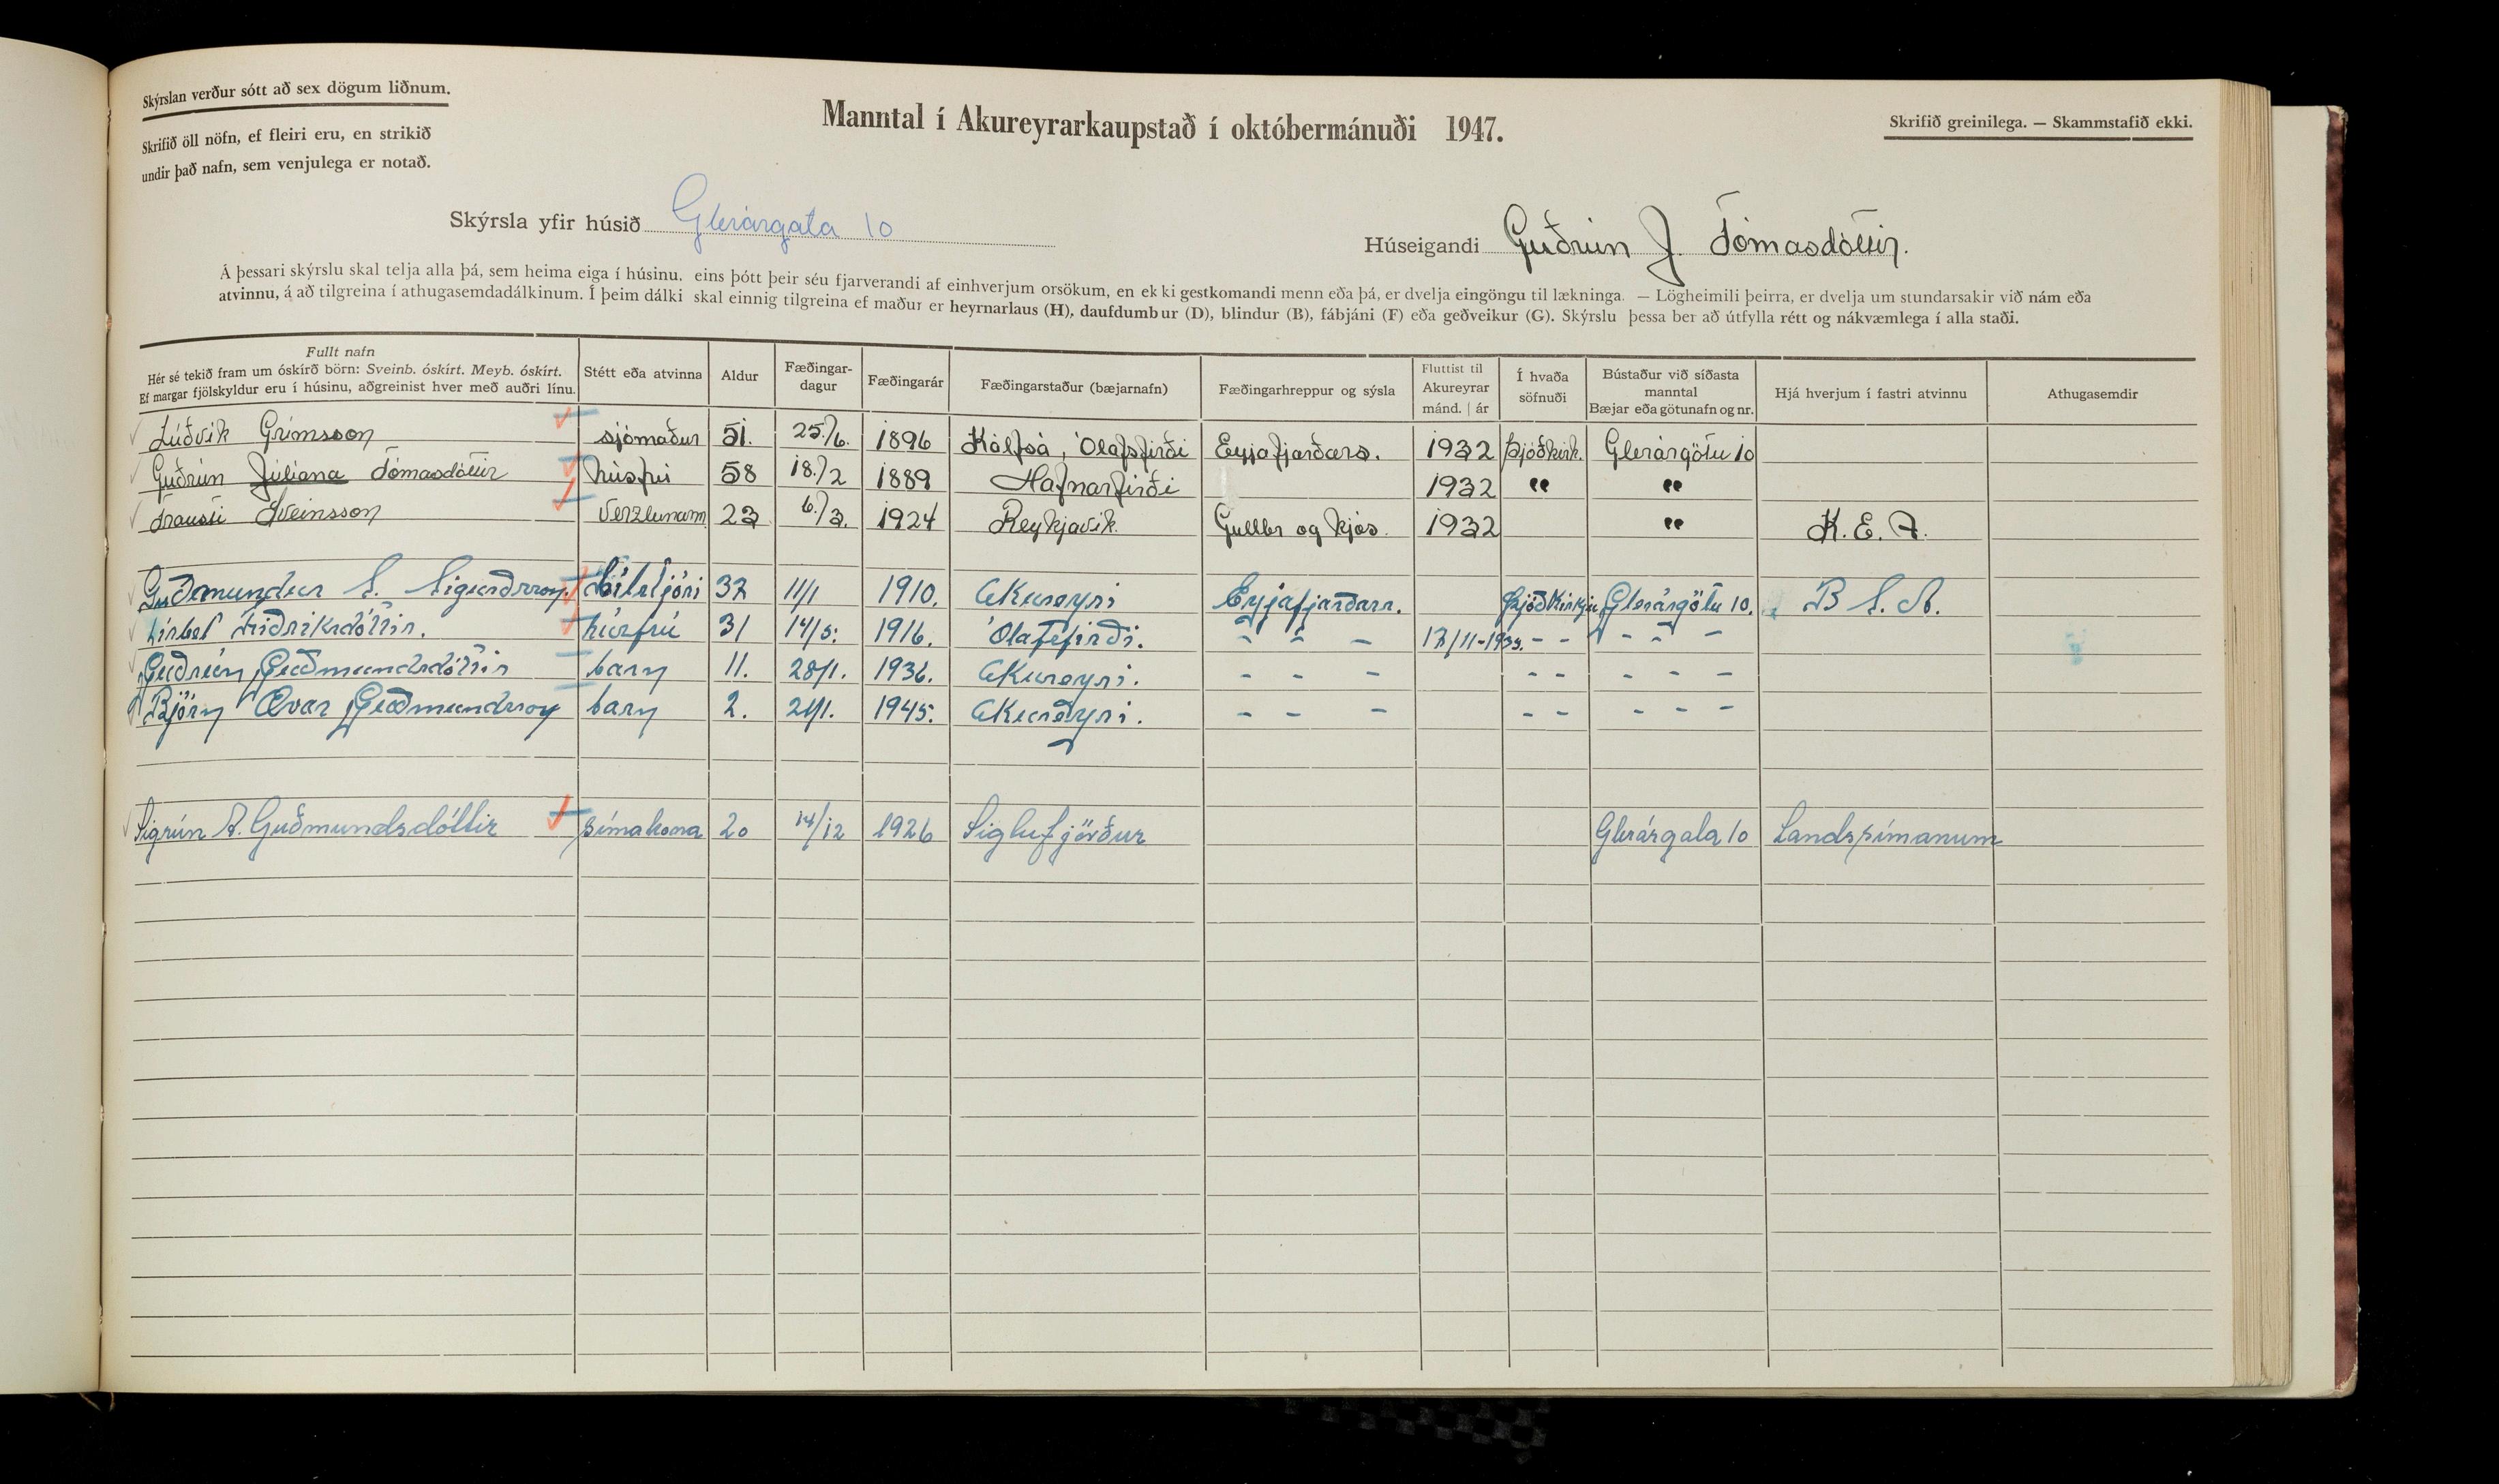 Skýrslan verður sótt að sex dögum liðnum.
Skrifið öll nöfn, ef fleiri eru, en strikið
undir það nafn, sem venjulega er notað.
Manntal í Akureyrarkaupstað í októbermánuði 1947.
Skrifið greinilega. — Skammstafið ekki.
Skýrsla yfir húsið Glerárgata 10
Húseigandi Guðrún J. Tómasdóttir.
Á þessari skýrslu skal telja alla þá, sem heima eiga í húsinu, eins þótt þeir séu fjarverandi af einhverjum orsökum, en ekki gestkomandi menn eða þá, er dvelja eingöngu til lækninga. — Lögheimili þeirra, er dvelja um stundarsakir við nám eða
atvinnu, á að tilgreina í athugasemdadálkinum. Í þeim dálki skal einnig tilgreina ef maður er heyrnarlaus (H), daufdumbur (D), blindur (B), fábjáni (F) eða geðveikur (G). Skýrslu þessa ber að útfylla rétt og nákvæmlega í alla staði.
Fullt nafn
Hér sé tekið fram um óskírð börn: Sveinb. óskírt. Meyb. óskírt.
Ef margar fjölskyldur eru í húsinu, aðgreinist hver með auðri línu.
Stétt eða atvinna
Aldur
Fæðingar-
dagur
Fæðingarár
Fæðingarstaður (bæjarnafn)
Fæðingarhreppur og sýsla
Fluttist til
Akureyrar
mánd. | ár
Í hvaða
söfnuði
Bústaður við síðasta
manntal
Bæjar eða götunafn og nr.
Hjá hverjum í fastri atvinnu
Athugasemdir
Lúðvik Grímsson sjómaður 51. 25./6. 1896 Kálfsá, Ólafsfirði Eyjafjarðars. 1932 Þjóðkirk. Glerárgötu 10
Guðrún Júlíana Tómasdóttir húsfrú 58 18./2 1889 Hafnarfirði 1932 " "
Trausti Sveinsson Verzlunarm. 23 6./3. 1924 Reykjavík. Gullbr og Kjós. 1932 " K. E. A.
Guðmundur S. Sigurðsson. bílstjóri 37 11/1 1910. Akureyri Eyjafjarðars. Þjóðkirkju Glerárgötu 10. B S. A.
Lísbet Friðriksdóttir. húsfrú 31 14/5. 1916. Ólafsfirði. - - - - - - - -
Guðrún Guðmundsdóttir barn 11. 28/1. 1936. Akureyri. - - - - - - - -
Björn Ævar Guðmundsson barn 2. 21/1. 1945. Akureyri. - - - - - - - -
Sigrún A. Guðmundsdóttir símakona 20 14/12 1926 Siglufjörður Glerárgata 10 Landssímanum